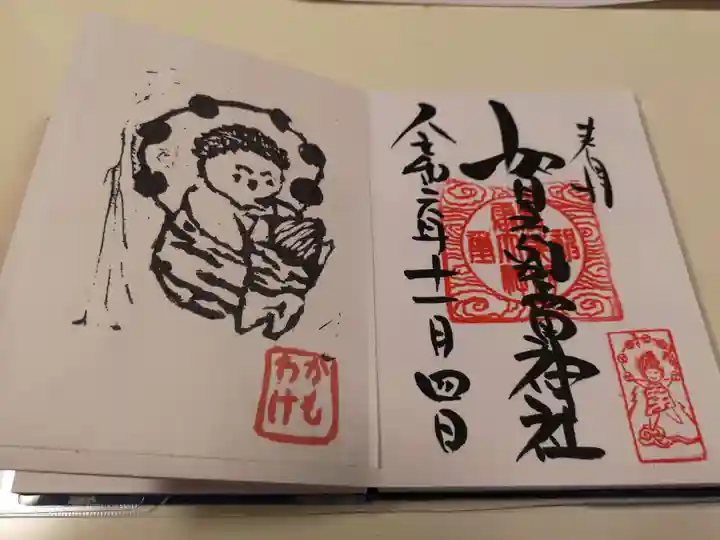 賀茂別雷神社
令和二年十一月四日
かも
わけ